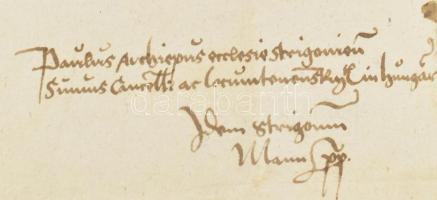 Paulus Archiepus ecclesie Strigonien
Sumus Cancell. ac Locumtenens Regis in Hungar
Idem Strigonien
Manu pp.
darabanth